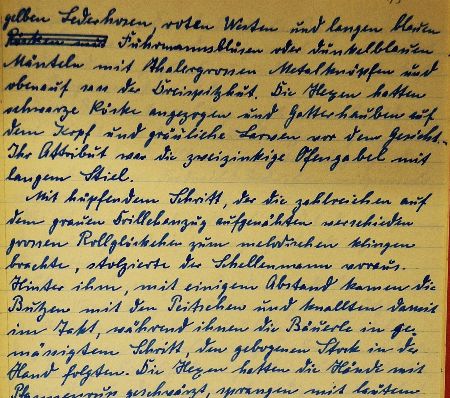 gelben Lederhosen, roten Westen und langen blauen
Fuhrmannsblusen oder dunkelblauen
Mänteln mit thalergrossen Metalknöpfen und
obenauf sass der Dreispitzhut. Die Hexen hatten
schwarze Röcke angezogen und Gatterhauben auf
dem Kopf und gräuliche Larven vor dem Gesicht.
Ihr Attribut war die zweizinkige Ofengabel mit
langem Stiel.
Mit hüpfendem Schritt, der die zahlreichen auf
dem grauen Drillchanzug aufgenähten verschieden
grossen Rollglöckchen zum melodischen klingen
brachte, stolzierte der Schellenmann voraus.
Hinter ihm, mit einigem Abstand kamen die
Butzen mit den Peitschen und knallten damit
im Takt, während ihnen die Bäuerle in ge-
mässigtem Schritt, den gebogenen Stock in der
Hand folgten. Die Hexen hatten die Hände mit
Pfannenruss geschwärzt, sprangen mit lautem